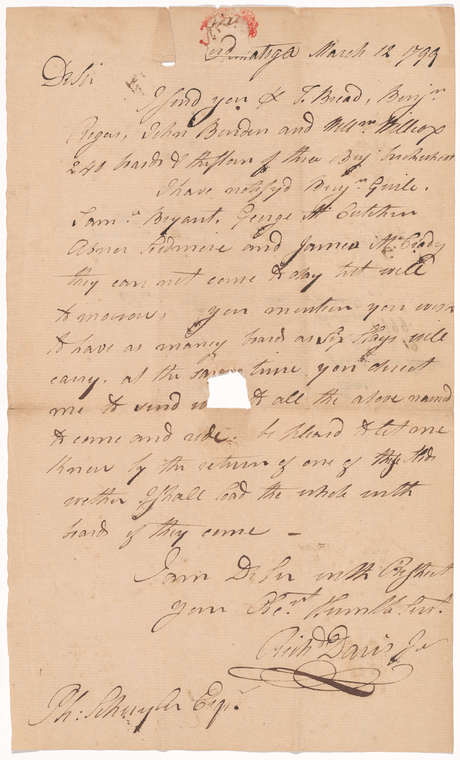 March 12 1799
Dr Sir
I send you & T. Bread, Benjn
Rogers, John Burden and Willm Willcox
240 boards & thirteen of three Inch
I have notifyd Benjn Guile.
Saml Bryant. George McCutchin
Abner and James McCredy
they can not come to day but will
to morrow, you mention you wish
to have as maney boards as Six Slays will
carry. at the same time you direct
me to send & all the above named
to come and ride. be pleasd to let me
know by the return of one of these
wether I shall load the whole with
boards if they come –
I am Dr Sir with Respect
your Obet. Humble Sert.
Richd Davis Jr
Ph: Schuyler Esqr.